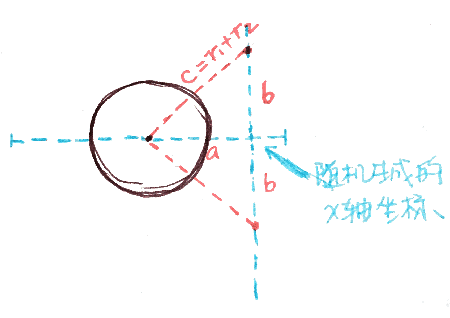 c=r1+r2
b
a
b
随机生成的
x轴坐标、